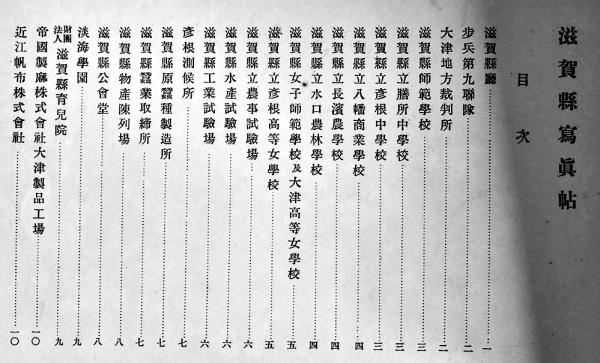 滋賀縣寫眞帖
目次
滋賀縣廳 一
步兵第九聯隊 二
大津地方裁判所 二
滋賀縣師範學校 三
滋賀縣立膳所中學校 三
滋賀縣立彥根中學校 三
滋賀縣立八幡商業學校 四
滋賀縣立長濱農學校 四
滋賀縣立水口農林學校 四
滋賀縣女子師範學校及大津高等女學校 五
滋賀縣立彥根高等女學校 五
滋賀縣立農事試驗場 六
滋賀縣水產試驗場 六
滋賀縣工業試驗場 六
彥根測候所 七
滋賀縣原蠶種製造所 七
滋賀縣蠶業取締所 七
滋賀縣物產陳列場 八
滋賀縣公會堂 八
淡海學園 九
財團法人滋賀縣育兒院 九
帝國製麻株式會社大津製品工場 一〇
近江帆布株式會社 一〇